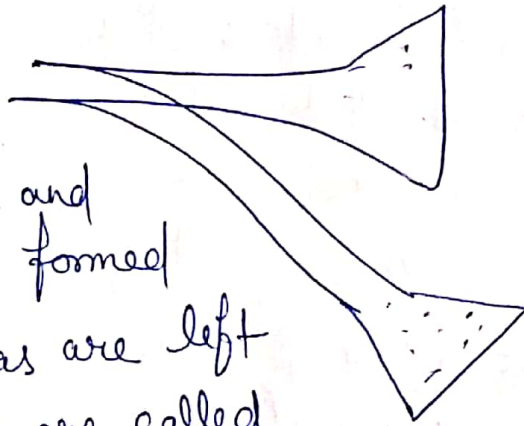 and
formed
as are left
are called